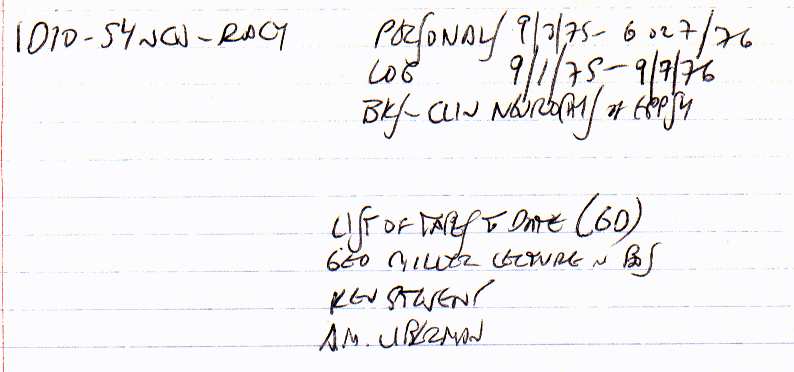 IDIO-SYNCN-RACY PERSONALS 9/3/75-6 or 7/76
LOG 9/1/75-9/7/76
BKS-CLIN NEUROPHYS of EPPSY
LIST OF TAPES TO DATE (60)
GEO MILLER LECTURE N BOS
KEN STEVENS
A.M. LIBERMAN